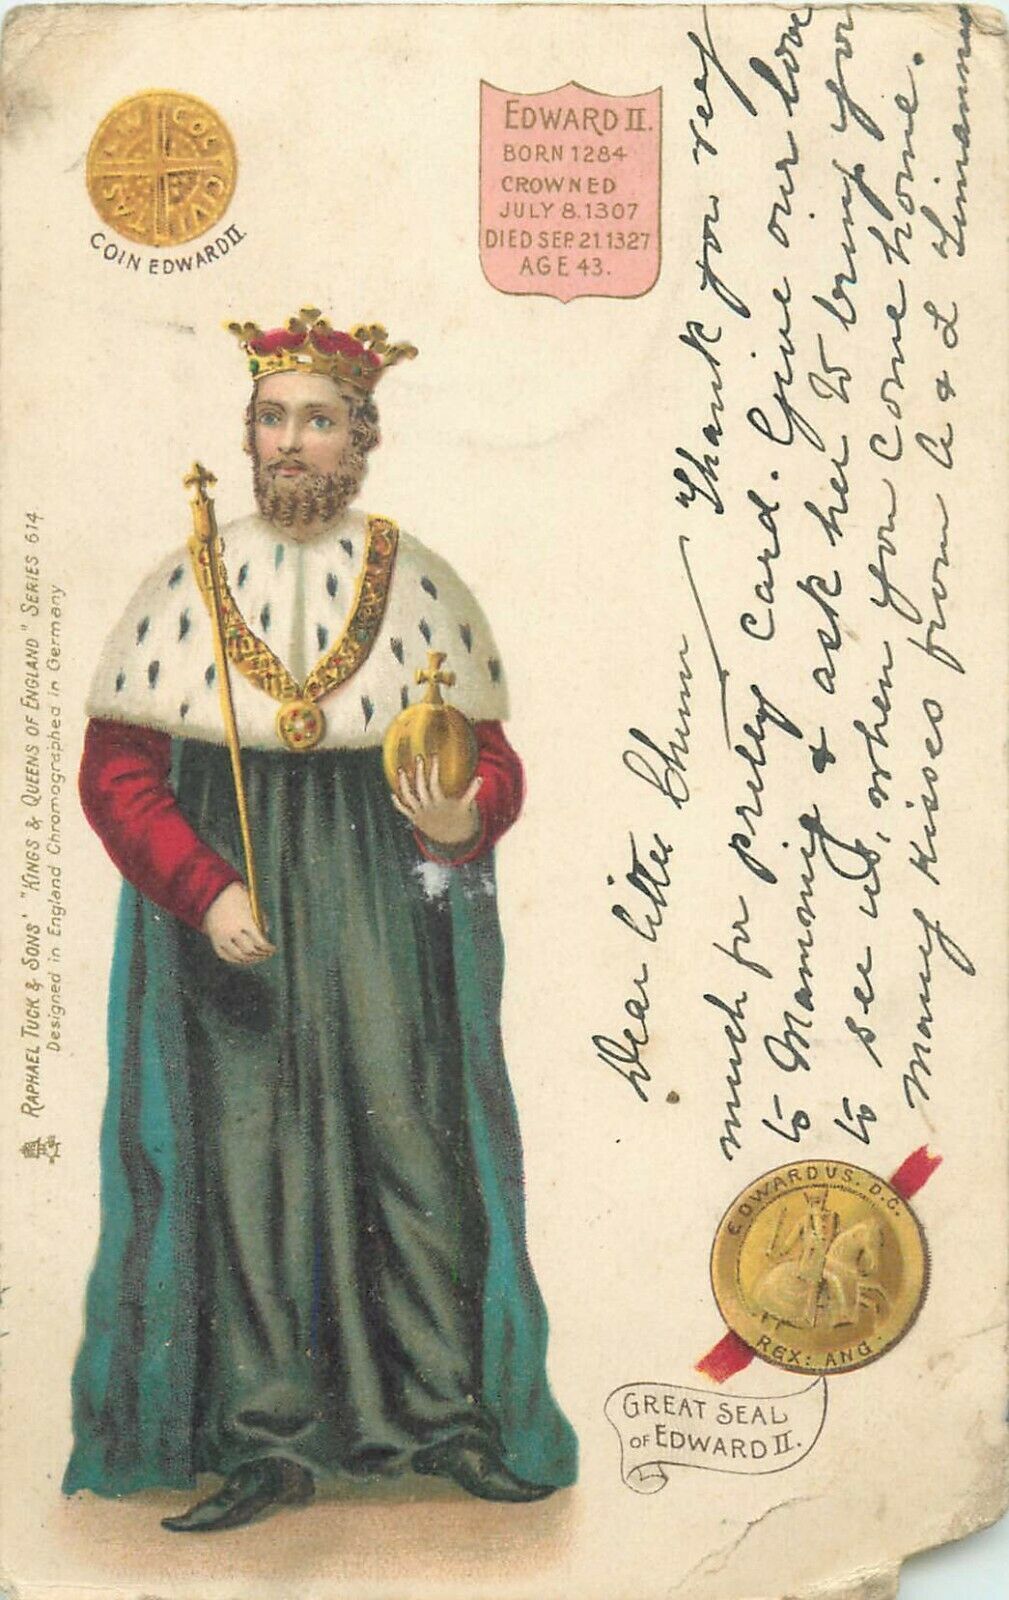 COIN EDWARD II.
CIVI
TAS
COL
EDWARD II.
BORN 1284
CROWNED
JULY 8.1307
DIED SEP. 21.1327
AGE 43.
RAPHAEL TUCK & SONS' "KINGS & QUEENS OF ENGLAND" SERIES 614
Designed in England Chromographed in Germany
Dear little Chum Thank you very
much for pretty card. Give our love
to Mammy & ask her to bring you
to see us, when you come home.
Many kisses from A & L
EDWARDVS. D.G.
REX: ANG.
GREAT SEAL
OF EDWARD II.